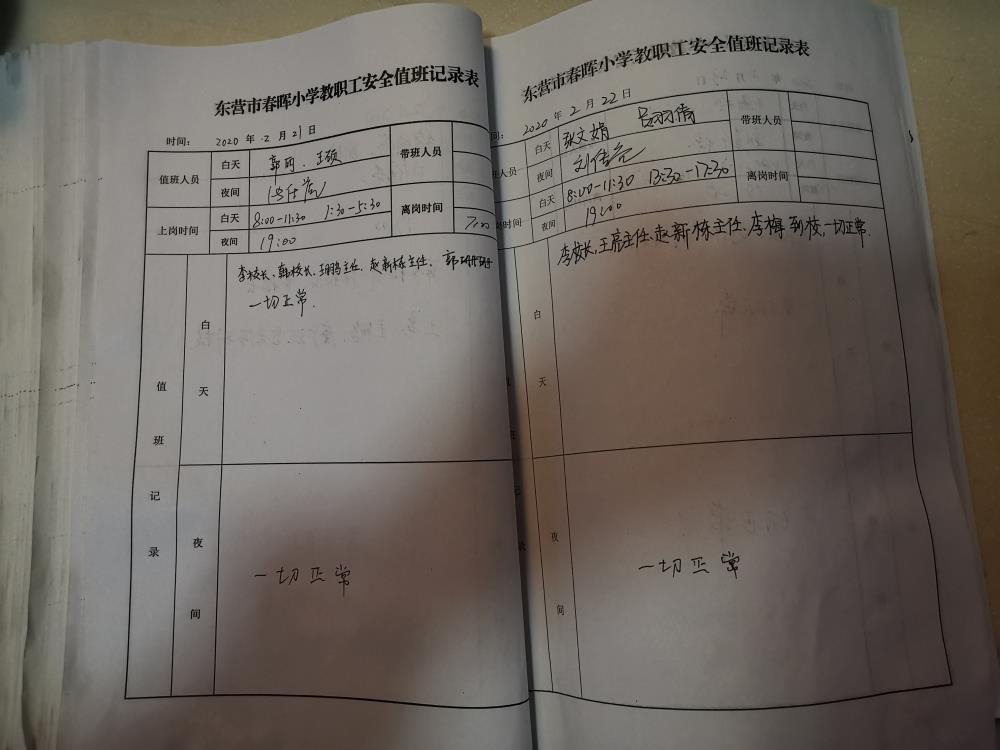 东营市春晖小学教职工安全值班记录表
时间： 2020 年 2 月 21 日
值班人员 白天 郭丽、王硕 带班人员
夜间
上岗时间 白天 8:00-11:30 1:30-5:30 离岗时间
夜间 19:00 7:00
值班记录 白天 李校长、韩校长、王鹏主任、赵新栋主任、郭珊珊
一切正常.
夜间 一切正常
东营市春晖小学教职工安全值班记录表
间： 2020 年 2 月 22 日
班人员 白天 耿文娟 吕羽倩 带班人员
夜间 刘倍亮
岗时间 白天 8:00-11:30 13:30-17:30 离岗时间
夜间 19:00
班记录 白天 李校长、王鹏主任、赵新栋主任、李梅到校,一切正常.
夜间 一切正常